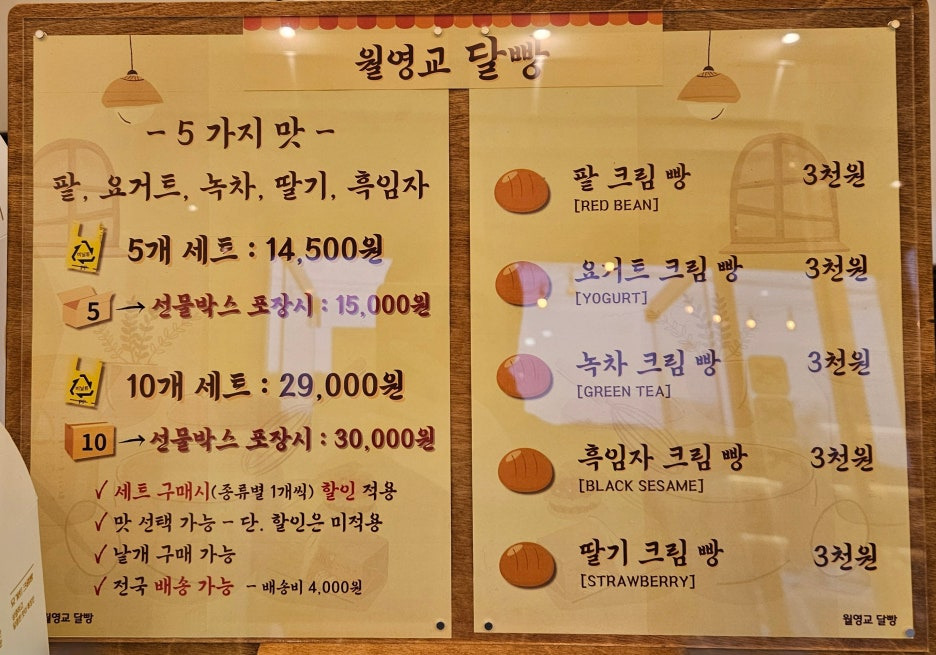 월영교 달빵
- 5 가지 맛 -
팥, 요거트, 녹차, 딸기, 흑임자
5개 세트 : 14,500원
5 → 선물박스 포장시 : 15,000원
10개 세트 : 29,000원
10 → 선물박스 포장시 : 30,000원
✓ 세트 구매시(종류별 1개씩) 할인 적용
✓ 맛 선택 가능 - 단. 할인은 미적용
✓ 낱개 구매 가능
✓ 전국 배송 가능 - 배송비 4,000원
월영교 달빵
팥 크림 빵 3천원
[RED BEAN]
요거트 크림 빵 3천원
[YOGURT]
녹차 크림 빵 3천원
[GREEN TEA]
흑임자 크림 빵 3천원
[BLACK SESAME]
딸기 크림 빵 3천원
[STRAWBERRY]
월영교 달빵